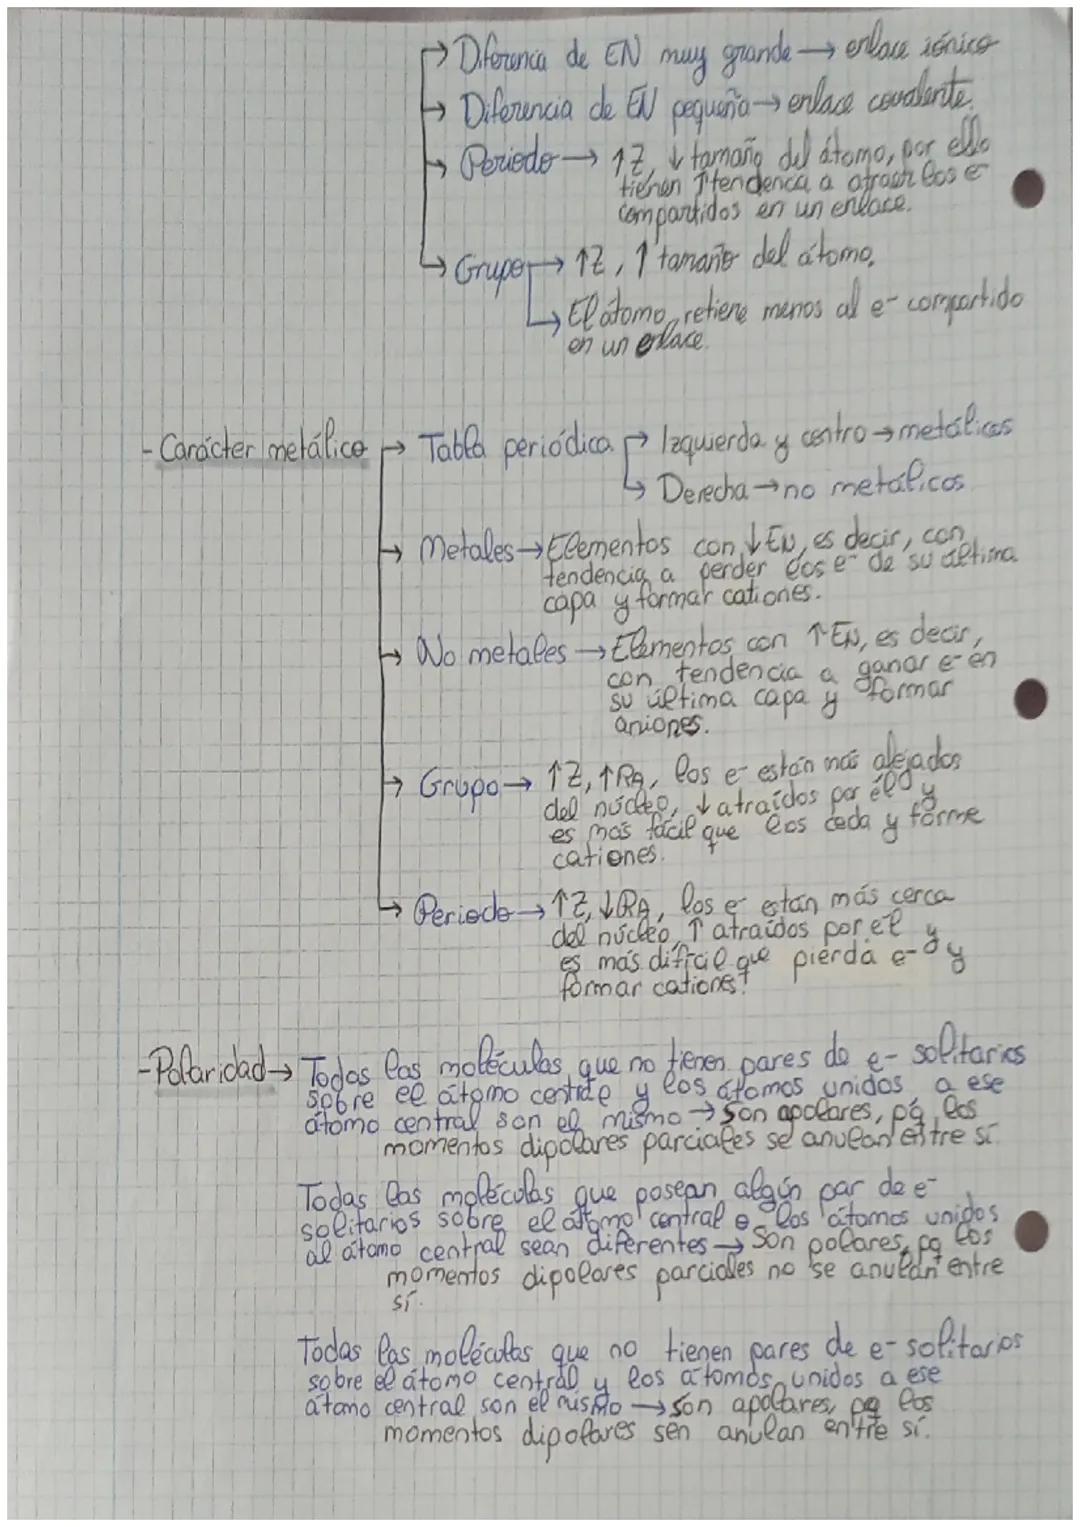 → Diferencia de EN muy grande → enlace iónico
→ Diferencia de EN pequeña → enlace covalente.
→ Periodo → ↑Z, ↓ tamaño del átomo, por ello
tienen ↑tendencia a atraer los e-
compartidos en un enlace.
→ Grupo → ↑Z, ↑ tamaño del átomo.
→ El átomo retiene menos al e- compartido
en un enlace.
- Carácter metálico → Tabla periódica → Izquierda y centro → metálicos
→ Derecha → no metálicos
→ Metales → Elementos con ↓EN, es decir, con
tendencia a perder los e- de su última
capa y formar cationes.
→ No metales → Elementos con ↑EN, es decir,
con tendencia a ganar e- en
su última capa y formar
aniones.
→ Grupo → ↑Z, ↑RA, los e- están más alejados
del núcleo, ↓ atraídos por él y
es más fácil que los ceda y forme
cationes.
→ Periodo → ↑Z, ↓RA, los e- están más cerca
del núcleo, ↑ atraídos por él y
es más difícil que pierda e- y
formar cationes.
- Polaridad → Todas las moléculas que no tienen pares de e- solitarios
sobre el átomo y los átomos unidos a ese
átomo central son el mismo → Son apolares, pq los
momentos dipolares parciales se anulan entre sí.
Todas las moléculas que posean algún par de e-
solitarios sobre el átomo central o los átomos unidos
al átomo central sean diferentes → Son polares, pq los
momentos dipolares parciales no se anulan entre
sí.
Todas las moléculas que no tienen pares de e- solitarios
sobre el átomo central y los átomos unidos a ese
átomo central son el mismo → son apolares, pq los
momentos dipolares sen anulan entre sí.